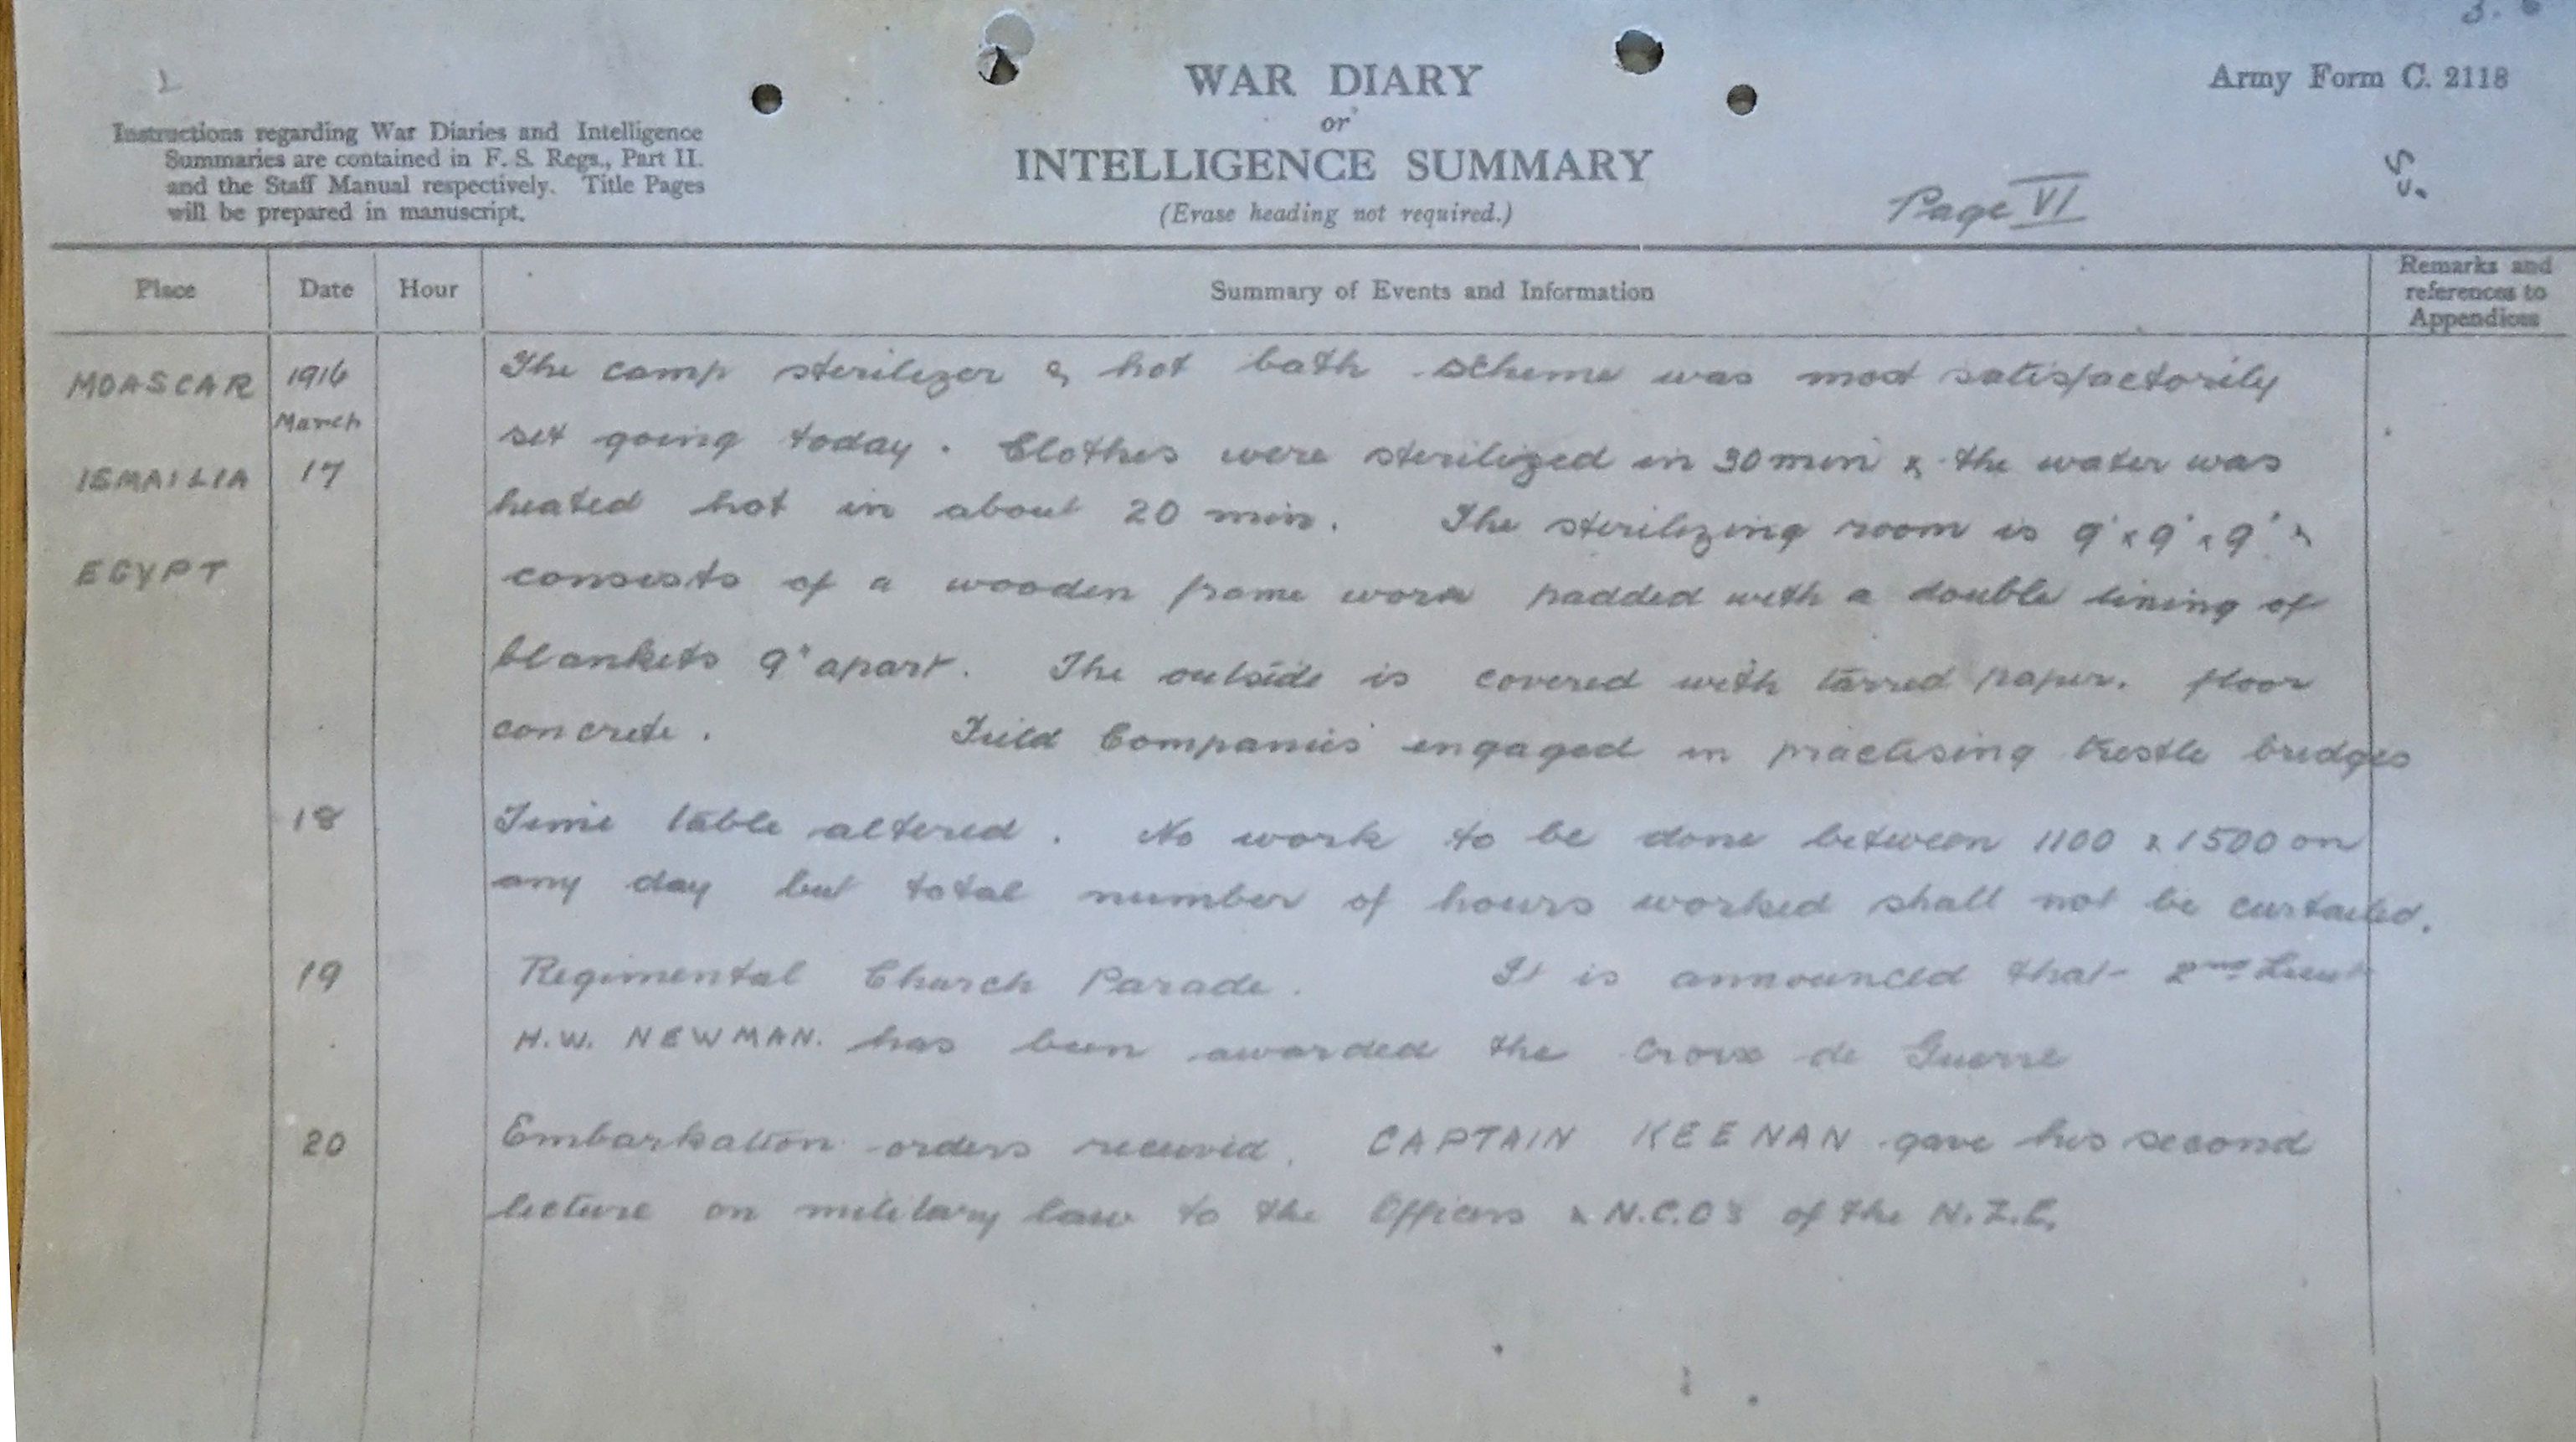 WAR DIARY
Army Form C. 2118
or
Instructions regarding War Diaries and Intelligence
Summaries are contained in F. S. Regs., Part II.
and the Staff Manual respectively. Title Pages
will be prepared in manuscript.
INTELLIGENCE SUMMARY
(Erase heading not required.)
Page VI
Place
Date
Hour
Summary of Events and Information
Remarks and
references to
Appendices
MOASCAR 1916 The camp sterilizer & hot bath scheme was most satisfactorily
March
ISMAILIA 17 set going today. Clothes were sterilized in 30 min & the water was
heated hot in about 20 min. The sterilizing room is 9' x 9' x 9' &
EGYPT consists of a wooden frame work padded with a double lining of
blankets 9" apart. The outside is covered with tarred paper. floor
concrete. Field Companies engaged in practising trestle bridges
18 Time table altered. No work to be done between 1100 & 1500 on
any day but total number of hours worked shall not be curtailed.
19 Regimental Church Parade. It is announced that 2nd Lieut
H.W. NEWMAN. has been awarded the Croix de Guerre
20 Embarkation orders received. CAPTAIN KEENAN gave his second
lecture on military law to the Officers & N.C.O's of the N.Z.E.